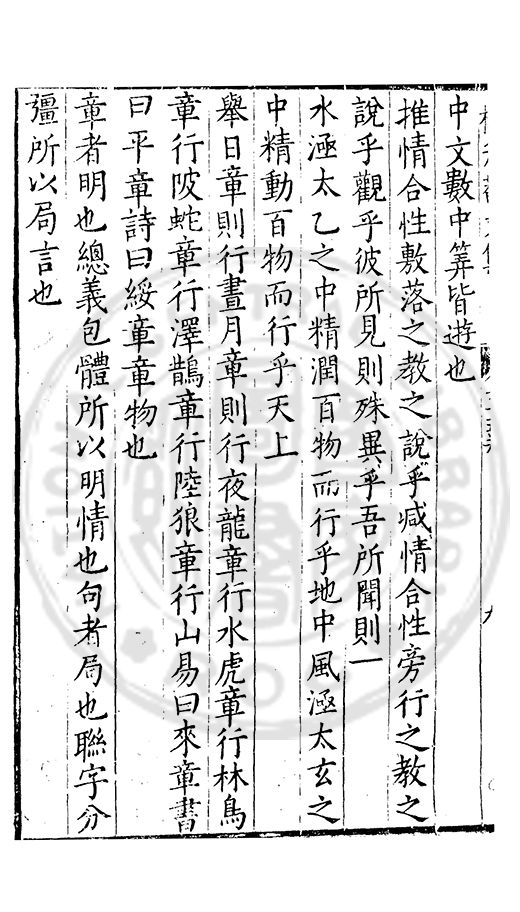 中文數中筭皆遊也
推情合性敷落之教之說乎減情合性旁行之教之
說乎觀乎彼所見則殊異乎吾所聞則一
水極太乙之中精潤百物而行乎地中風極太玄之
中精動百物而行乎天上
舉日章則行晝月章則行夜龍章行水虎章行林鳥
章行陂蛇章行澤鵲章行陸狼章行山易曰來章書
曰平章詩曰綏章章物也
章者明也總義包體所以明情也句者局也聯字分
彊所以局言也